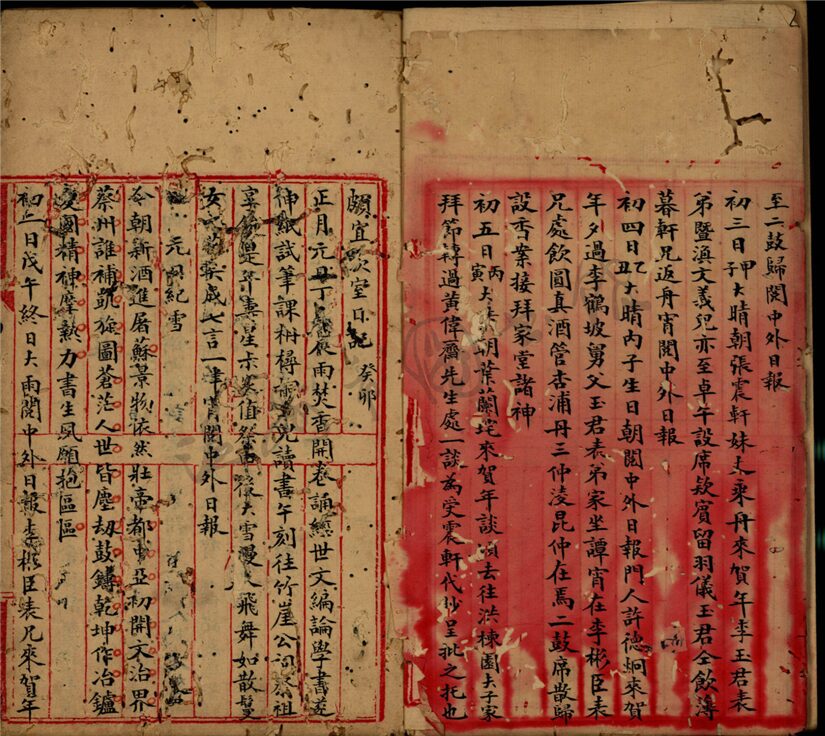 至二鼓歸閱中外日報
初三日甲子大晴朝張震軒妹丈乘舟來賀年李玉君表
弟暨滇文義兒亦至卓午設席欵賓留羽儀玉君仝飲薄
暮軒兄返舟宵閱中外日報
初四日乙丑大晴丙子生日朝閱中外日報門人許德炯來賀
年夕過李鶴坡舅父玉君表弟家坐譚宵在李彬臣表
兄處飲圓真酒管杏浦丹三仲淩昆仲在焉二鼓席散歸
設香案接拜家堂諸神
初五日丙寅大 朝葉蘭垞來賀年談頃去往洪棟園夫子家
拜節轉過黃偉齋先生處一談為受震軒代抄呈批之托也
頗宜茨室日記 癸卯
正月元旦丁 夜雨焚香開卷誦經世文編論學書遂
伸紙試筆課枏樗 兒讀書午刻往竹崖公祠祭祖
宴飲是年 星 值祭 大雪漫天飛舞如散髮
女 成七言一律宵閱中外日報
元日紀雪
今朝新酒進屠蘇景物依然壯帝都東亞初開文治界
蔡州誰補凱旋圖蒼茫人世皆塵劫鼓鑄乾坤作冶鑪
愛國精神摩熱力書生夙願抱區區
初二日戊午終日大雨閱中外日報李彬臣表兄來賀年